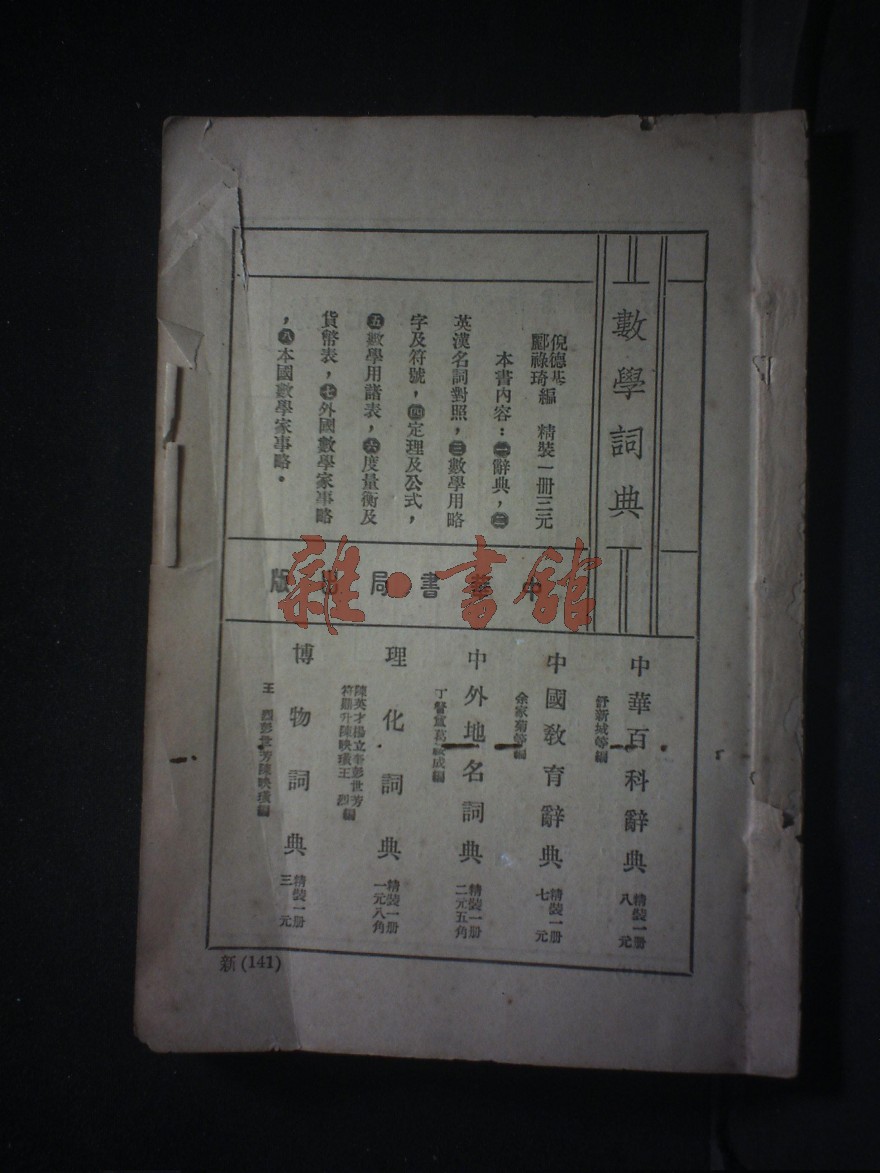 數學詞典
倪德基
酈祿琦編 精裝一冊三元
本書內容：㊀辭典，㊁
英漢名詞對照，㊂數學用略
字及符號，㊃定理及公式，
㊄數學用諸表，㊅度量衡及
貨幣表，㊆外國數學家事略
，㊇本國數學家事略。
中華書局出版
雜·書館
中華百科辭典 精裝一冊 八元
舒新城等編
中國教育辭典 精裝一冊 七元
余家菊等編
中外地名詞典 精裝一冊 二元五角
丁詧盦葛綏成編
理化詞典 精裝一冊 一元八角
陳英才楊立奎彭世芳
符鼎升陳映璜王烈編
博物詞典 精裝一冊 三元
王烈彭世芳陳映璜編
新(141)